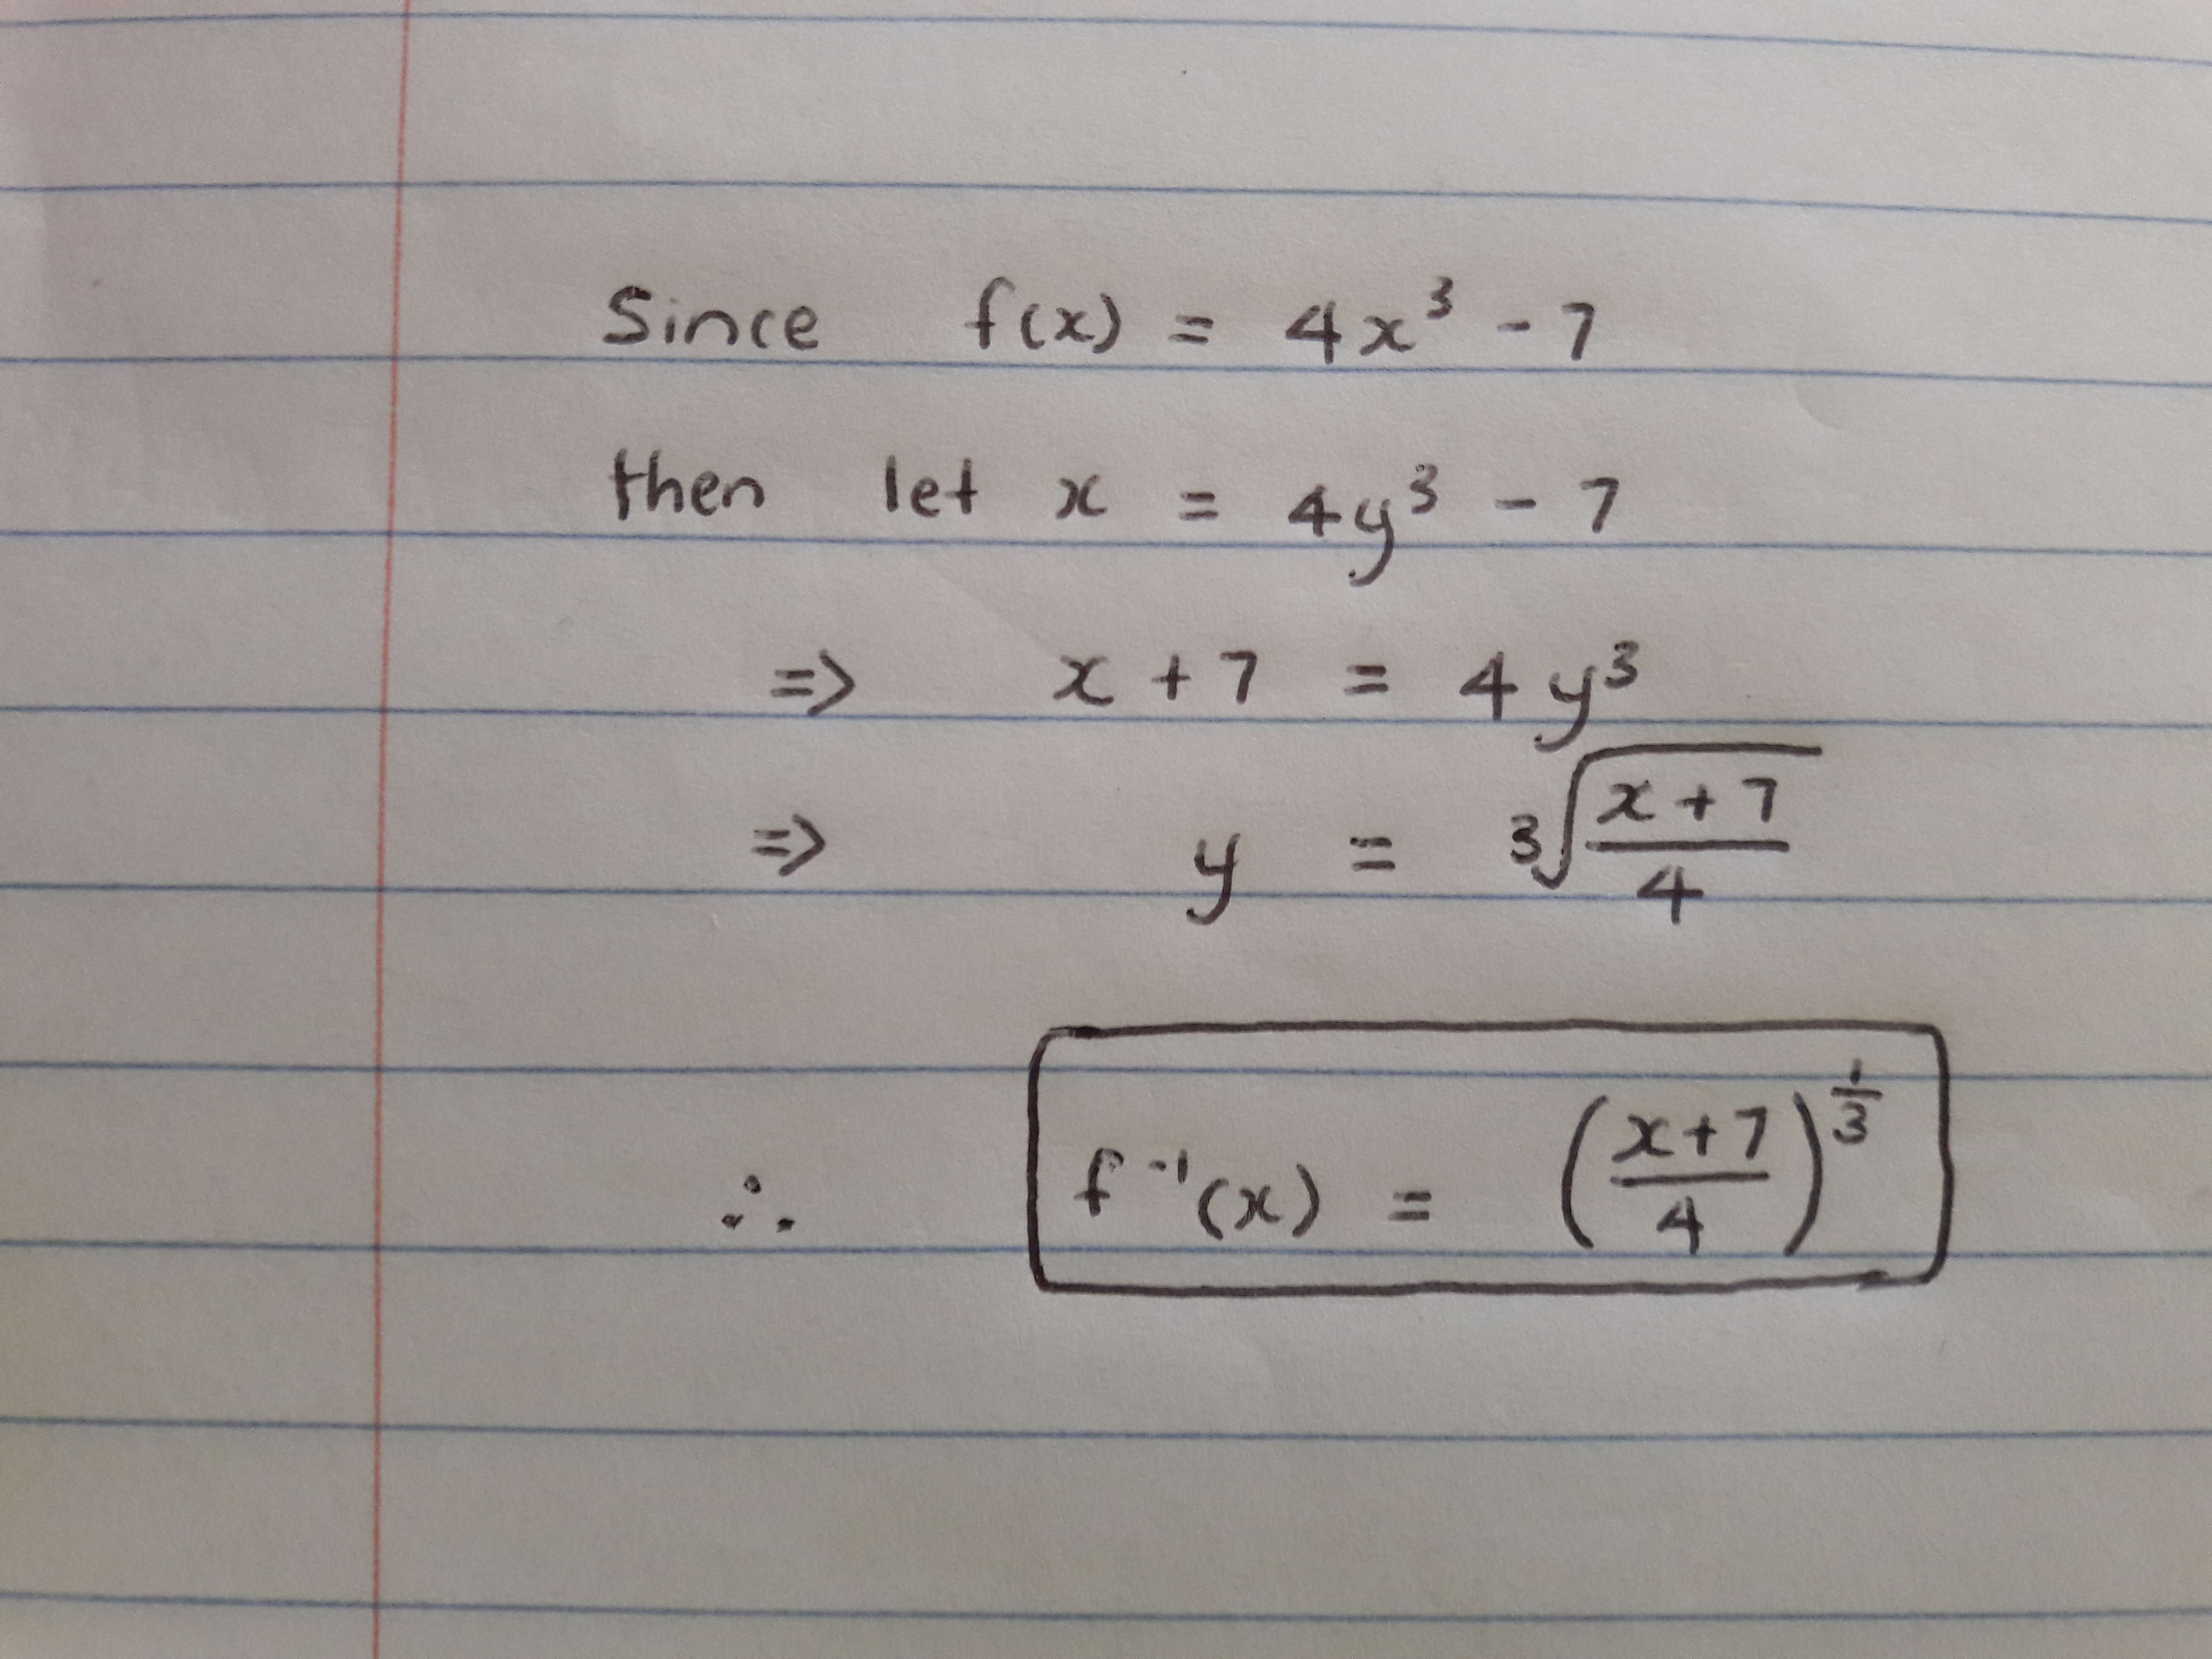 Since f(x) = 4x³ - 7
then let x = 4y³ - 7
=> x + 7 = 4y³
=> y = ∛((x + 7)/4)
∴ f⁻¹(x) = ((x+7)/4)^(1/3)